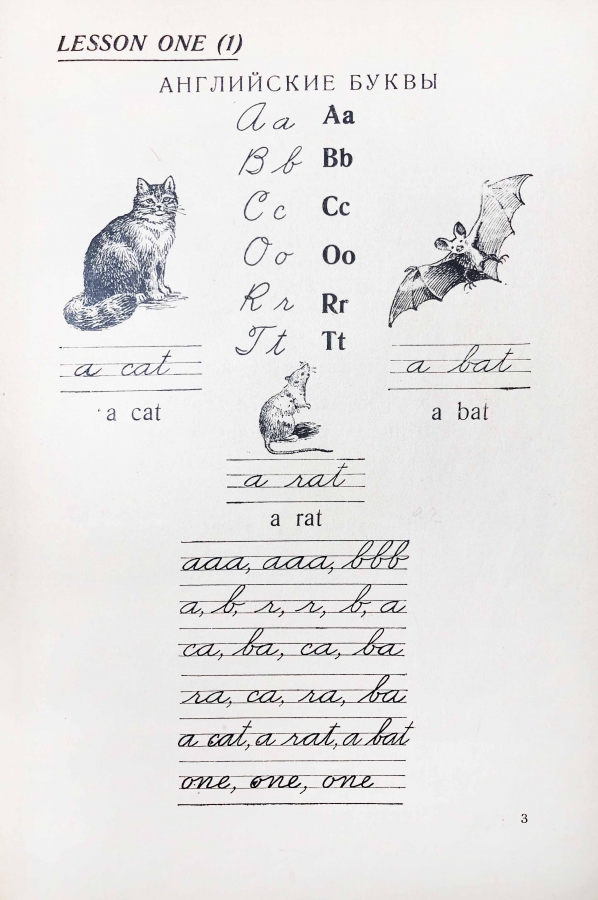 LESSON ONE (1)
АНГЛИЙСКИЕ БУКВЫ
A a Aa
B b Bb
C c Cc
O o Oo
R r Rr
T t Tt
a cat
a cat
a bat
a bat
a rat
a rat
aaa, aaa, bbb
a, b, r, r, b, a
ca, ba, ca, ba
ra, ca, ra, ba
a cat, a rat, a bat
one, one, one
3